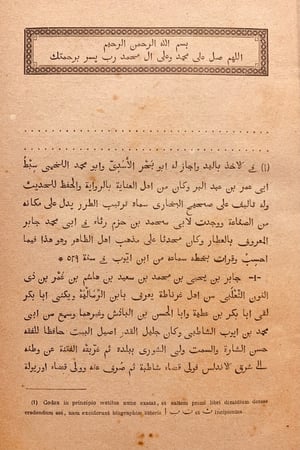 بسم الله الرحمن الرحيم
اللهم صل على محمد وعلى ال محمد رب يسر برحمتك
(1) في الاخذ باليد واجاز له ابو بحر الأسدي وابو محمد اللخمي سبط
ابي عمر بن عبد البر وكان من اهل العناية بالرواية والحفظ للحديث
وله تاليف على صحيح البخاري سماه ترتيب الطرر يدل على مكانه
من الصناعة ووجدت لابي محمد بن حزم رثاء في ابي محمد جابر
المعروف بالعطار وكان محدثا على مذهب اهل الظاهر وهو هذا فيما
احسب وقرات بخطه سماعه من ابن ايوب في سنة ٥٢٩ *
-١- جابر بن يحيى بن محمد بن سعيد بن هاشم بن غمر بن ذي
النون الثعلبي من اهل غرناطة يعرف بابن الرمالية ويكنى ابا بكر
لقي ابا بكر بن عطية وابا الحسن بن الباذش وغيرهما وسمع من ابي
محمد بن ايوب الشاطبي وكان جليل القدر اصيل البيت حافظا للفقه
حسن الشارة والسمت ولي الشورى ببلده ثم غربته الفتنة عن وطنه
الى شرق الاندلس فولي قضاء شاطبة ثم صرف عنه وولي قضاء اوريولة
(1) Codex in principio mutilus nunc exstat, et saltem primi libri
credendum est, nam exciderunt biographiae literis ا ب ت et ث incipientes.